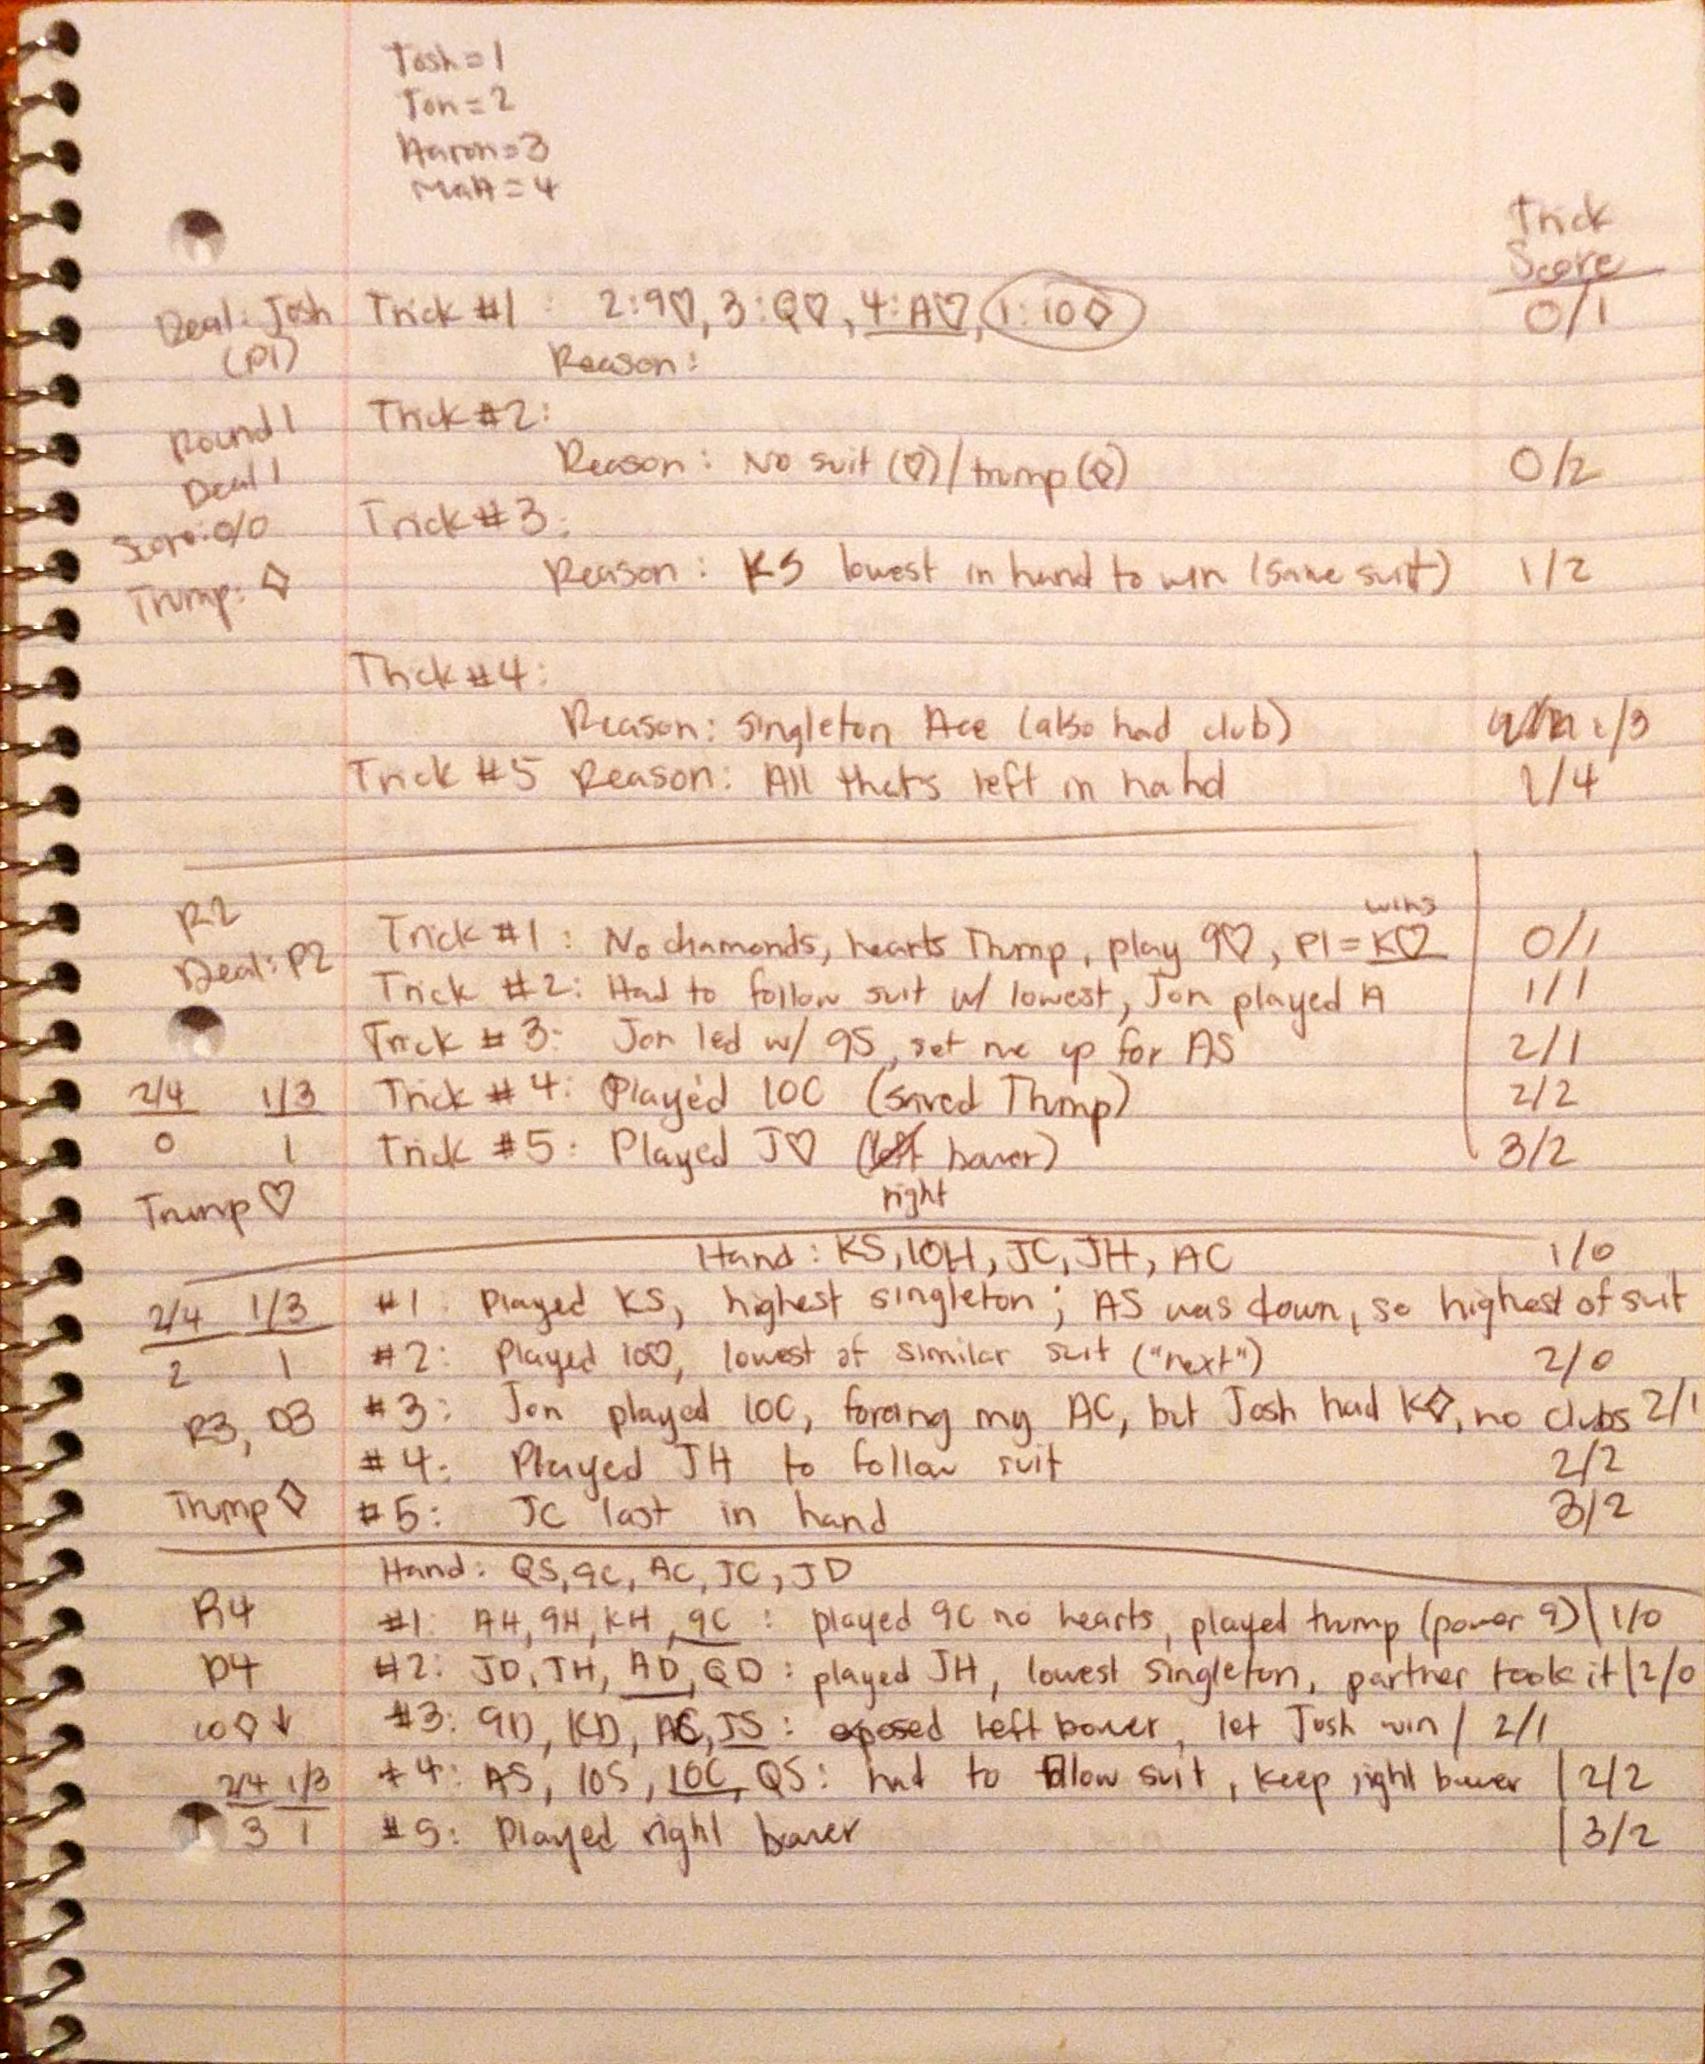 Josh = 1
Jon = 2
Aaron = 3
Matt = 4
Trick
Score
Deal: Josh
(P1)
Trick #1 : 2:9♡, 3:Q♡, 4:A♡, 1:10◇ 0/1
Reason:
Round 1
Deal 1
Score: 0/0
Trump: ◇
Trick #2:
Reason: No suit (♡)/trump (◇) 0/2
Trick #3:
Reason: KS lowest in hand to win (same suit) 1/2
Trick #4:
Reason: singleton Ace (also had club) 1/3
Trick #5 Reason: All that's left in hand 1/4
R2
Deal: P2
Trick #1: No diamonds, hearts Trump, play 9♡, P1 = K♡ wins 0/1
Trick #2: Had to follow suit w/ lowest, Jon played A 1/1
Trick #3: Jon led w/ 9S, set me up for AS 2/1
2/4 1/3
Trick #4: Played 10C (saved Trump) 2/2
0 1
Trick #5: Played J♡ (left bower) 3/2
right
Trump ♡
Hand: KS, 10H, JC, JH, AC 1/0
2/4 1/3
#1: Played KS, highest singleton; AS was down, so highest of suit
2 1
#2: Played 10♡, lowest of similar suit ("next") 2/0
R3, D3
#3: Jon played 10C, forcing my AC, but Josh had K◇, no clubs 2/1
#4: Played JH to follow suit 2/2
Trump ◇
#5: JC last in hand 3/2
Hand: QS, 9C, AC, JC, JD
R4
#1: AH, 9H, KH, 9C: played 9C no hearts, played trump (power 9) | 1/0
D4
#2: JD, JH, AD, QD: played JH, lowest singleton, partner took it | 2/0
10◇↓
#3: 9D, KD, AC, JS: exposed left bower, let Josh win / 2/1
2/4 1/3
#4: AS, 10S, 10C, QS: had to follow suit, keep right bower | 2/2
3 1
#5: Played right bower | 3/2